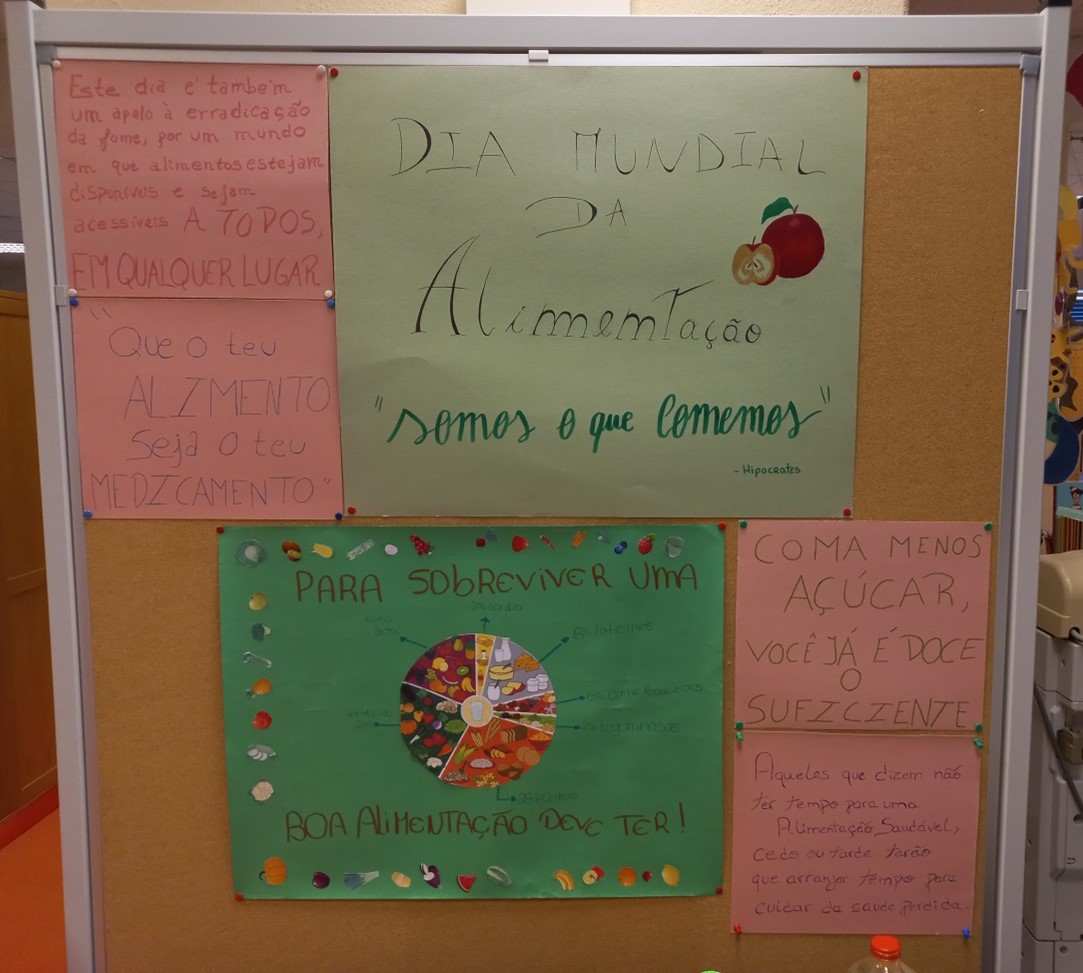 Este dia é também
um apelo à erradicação
da fome, por um mundo
em que alimentos estejam
disponíveis e sejam
acessíveis A TODOS,
EM QUALQUER LUGAR
"Que o teu
ALIMENTO
seja o teu
MEDICAMENTO"
DIA MUNDIAL
DA
Alimentação
"somos o que comemos"
- Hipocrates
PARA SObREVIVER UMA
BOA AlimENTAÇÃO DEVE TER!
leguminosas
COMA MENOS
AÇÚCAR,
VOCÊ JÁ É DOCE
O
SUFICIENTE
Aqueles que dizem não
ter tempo para uma
Alimentação Saudável,
cedo ou tarde terão
que arranjar tempo para
cuidar da saúde perdida.